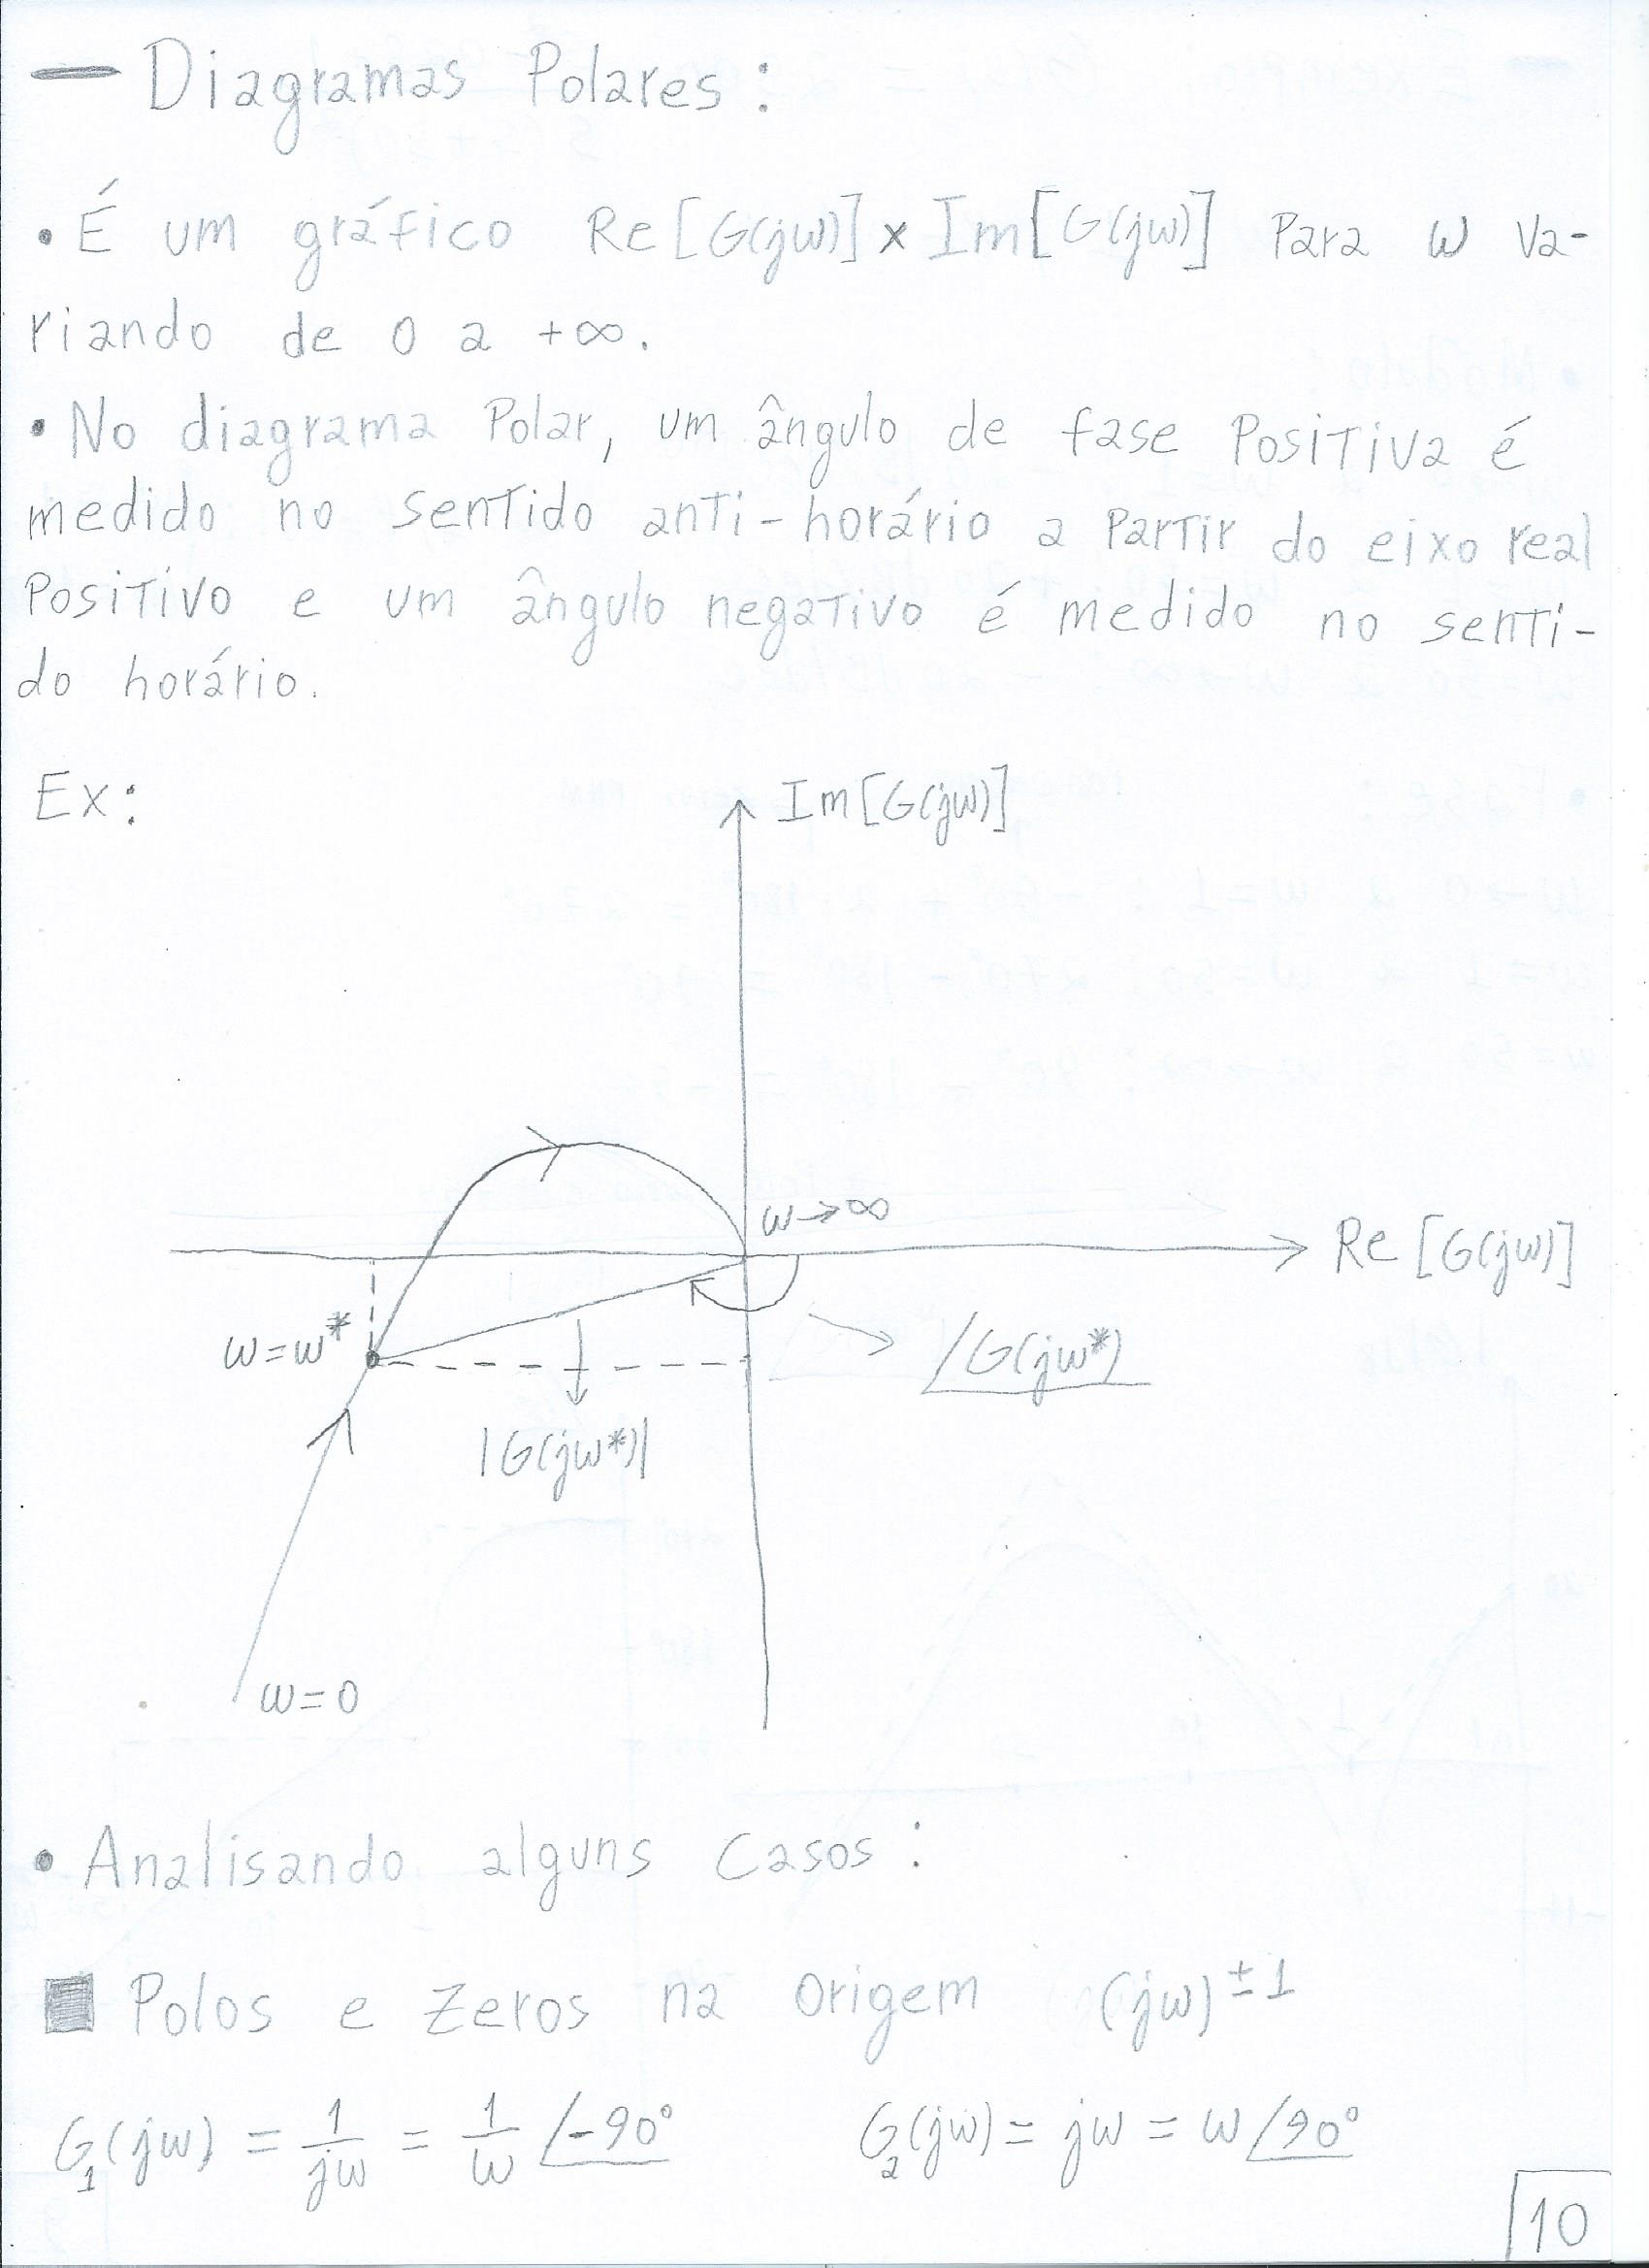 — Diagramas Polares:
• É um gráfico Re[G(jω)] × Im[G(jω)] para ω va-
riando de 0 a +∞.
• No diagrama Polar, um ângulo de fase Positiva é
medido no sentido anti-horário a partir do eixo real
Positivo e um ângulo negativo é medido no senti-
do horário.
Ex:
Im[G(jω)]
ω→∞
Re[G(jω)]
ω=ω*
∠G(jω*)
|G(jω*)|
ω=0
• Analisando alguns casos:
■ Polos e zeros na origem (jω)^±1
G₁(jω) = 1/jω = 1/ω ∠-90° G₂(jω) = jω = ω∠90°
10